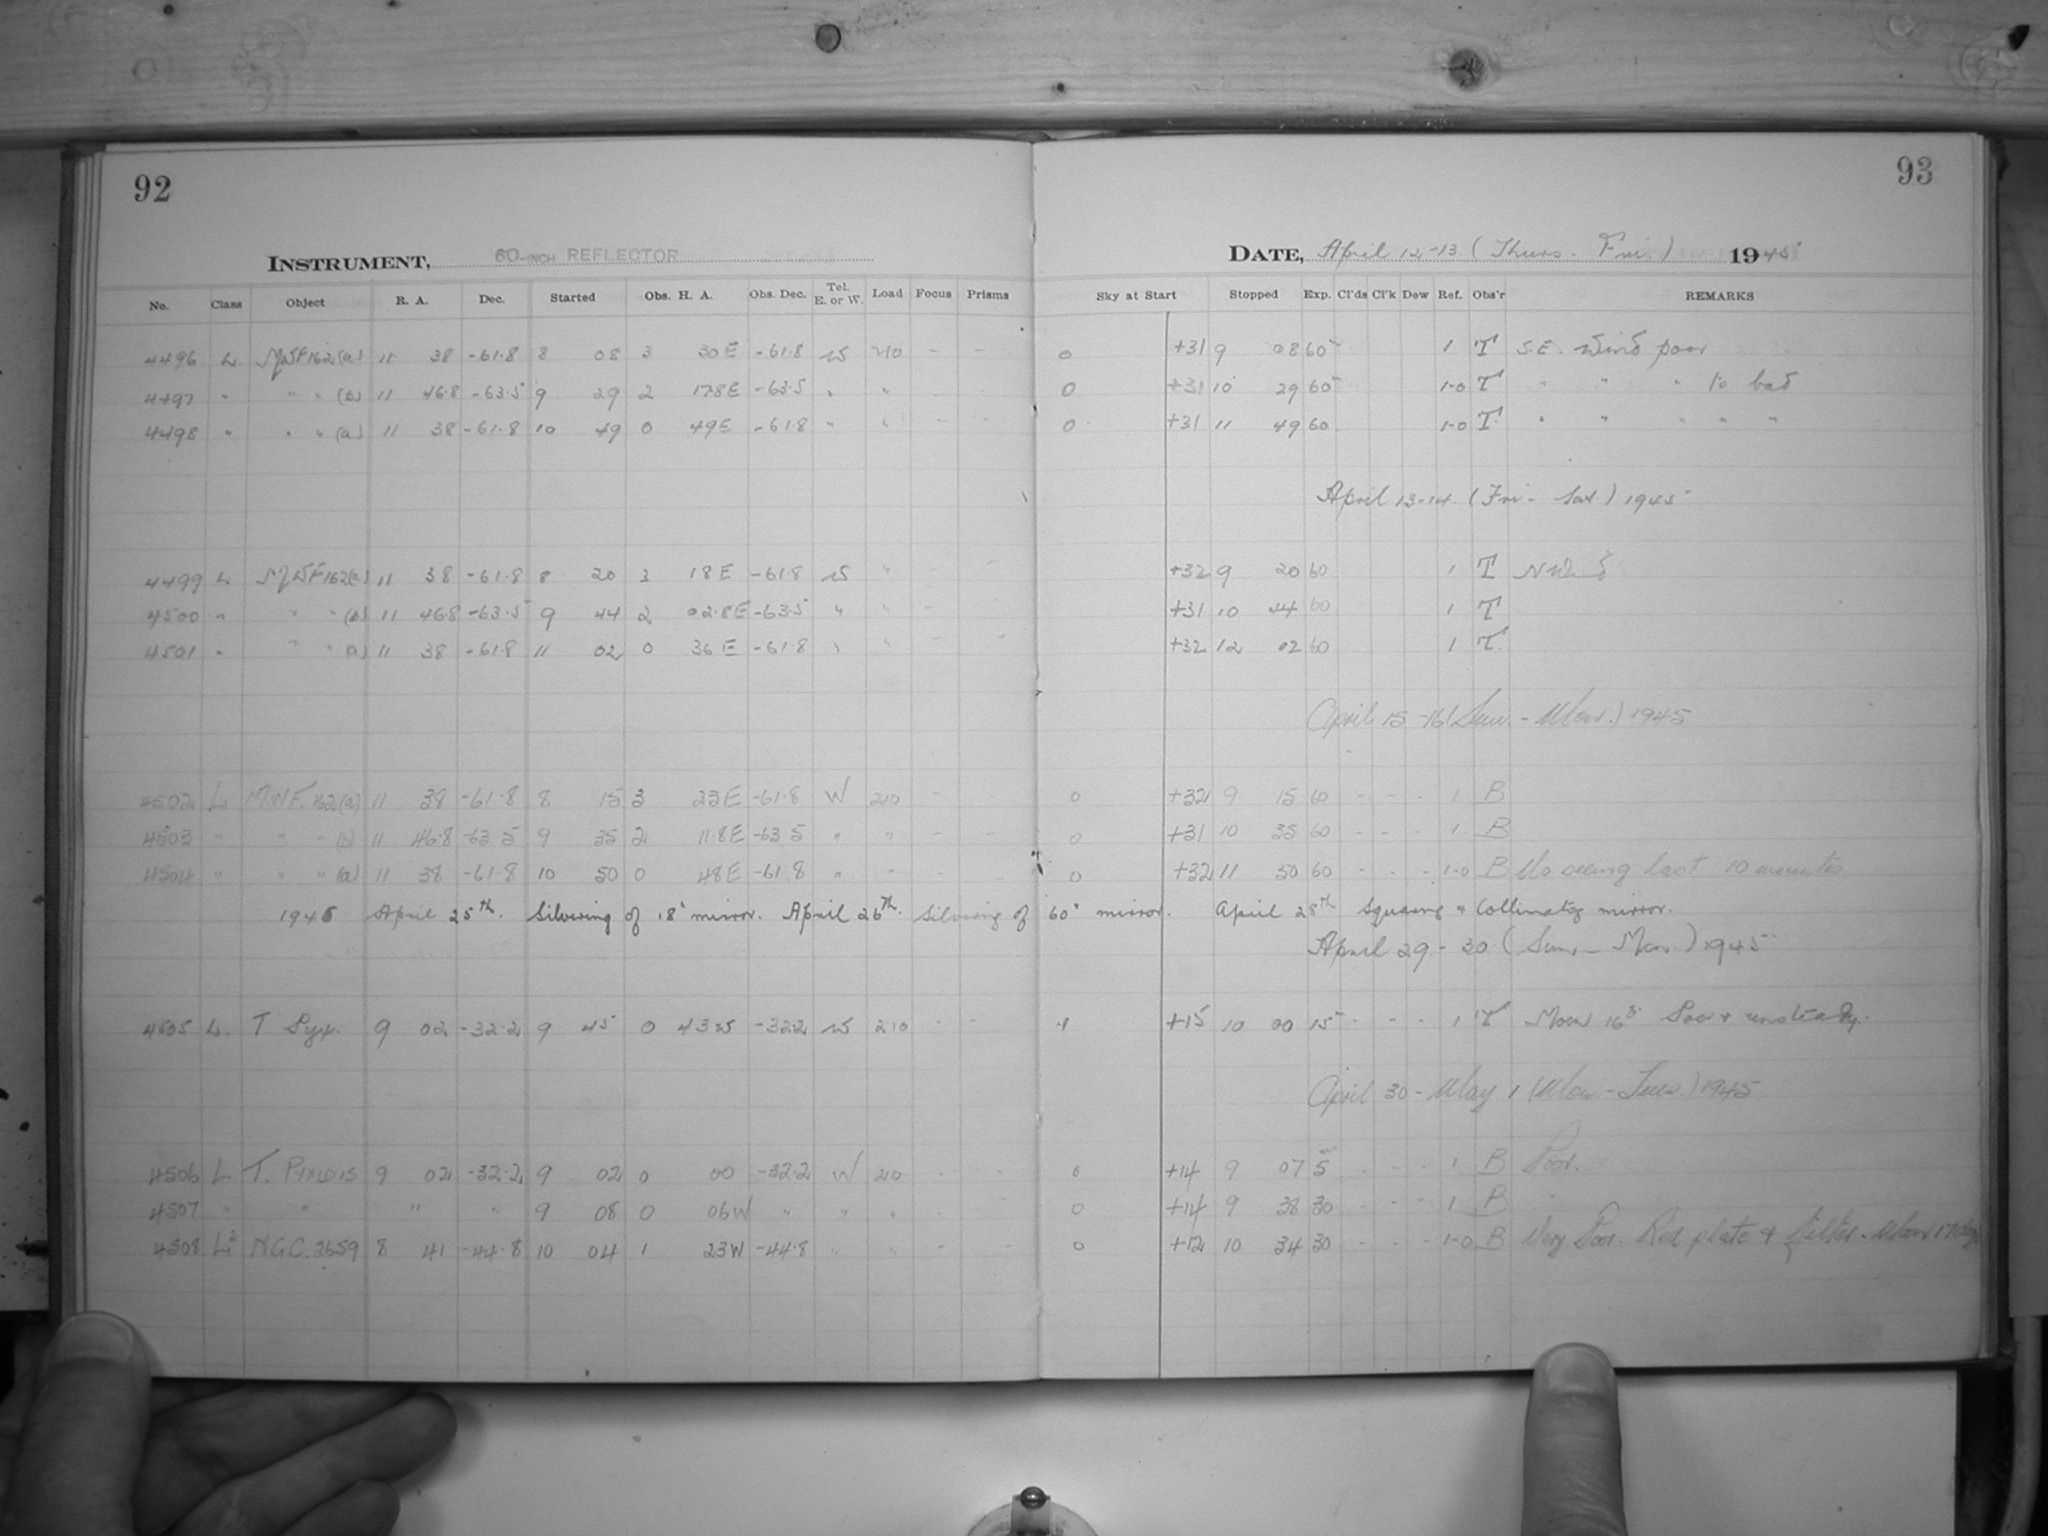 92
93
INSTRUMENT, 60-INCH REFLECTOR
DATE, April 12-13 (Thurs. Fri) 1945
No. Class Object R. A. Dec. Started Obs. H. A. Obs. Dec. Tel. E. or W. Load Focus Prisms Sky at Start Stopped Exp. Cl'ds Cl'k Dew Ref. Obs'r REMARKS
4496 L MWF162(a) 11 38 -61.8 8 08 3 30E -61.8 W 210 - - 0 +31 9 08 60 1 T S.E. wind poor
4497 " " " (b) 11 46.8 -63.5 9 29 2 17.8E -63.5 " " - - 0 +31 10 29 60 1-0 T " " " to bad
4498 " " " (a) 11 38 -61.8 10 49 0 49E -61.8 " " - - 0 +31 11 49 60 1-0 T " " " " "
April 13-14 (Fri - Sat) 1945
4499 L MWF162(a) 11 38 -61.8 8 20 3 18E -61.8 W " - - +32 9 20 60 1 T N wind
4500 " " " (b) 11 46.8 -63.5 9 44 2 02.8E -63.5 " " - - +31 10 44 60 1 T
4501 " " " (a) 11 38 -61.8 11 02 0 36E -61.8 " " - - +32 12 02 60 1 T
April 15-16 (Sun - Mon.) 1945
4502 L M.W.F. 162(a) 11 38 -61.8 8 15 3 23E -61.8 W 210 - - 0 +32 9 15 60 - - - 1 B
4503 " " " (b) 11 46.8 -63.5 9 35 2 11.8E -63.5 " " - - 0 +31 10 35 60 - - - 1 B
4504 " " " (a) 11 38 -61.8 10 50 0 48E -61.8 " " - - 0 +32 11 50 60 - - - 1-0 B No seeing last 10 minutes
1945 April 25th. Silvering of 18" mirror. April 26th. Silvering of 60" mirror. April 28th Squaring & Collimating mirror.
April 29-30 (Sun - Mon.) 1945
4505 L. T Pyx. 9 02 -32.2 9 45 0 43W -32.2 W 210 - - .1 +15 10 00 15 - - - 1 T Moon 16d Poor & unsteady.
April 30 - May 1 (Mon - Tues.) 1945
4506 L T. PYXIDIS 9 02 -32.2 9 02 0 00 -32.2 W 210 - - 0 +14 9 07 5 - - - 1 B Poor.
4507 " " " " 9 08 0 06W " " " - - 0 +14 9 38 30 - - - 1 B "
4508 L2 NGC. 2659 8 41 -44.8 10 04 1 23W -44.8 " " - - 0 +12 10 34 30 - - - 1-0 B Very Poor. Red plate & filter. Moon 17 days